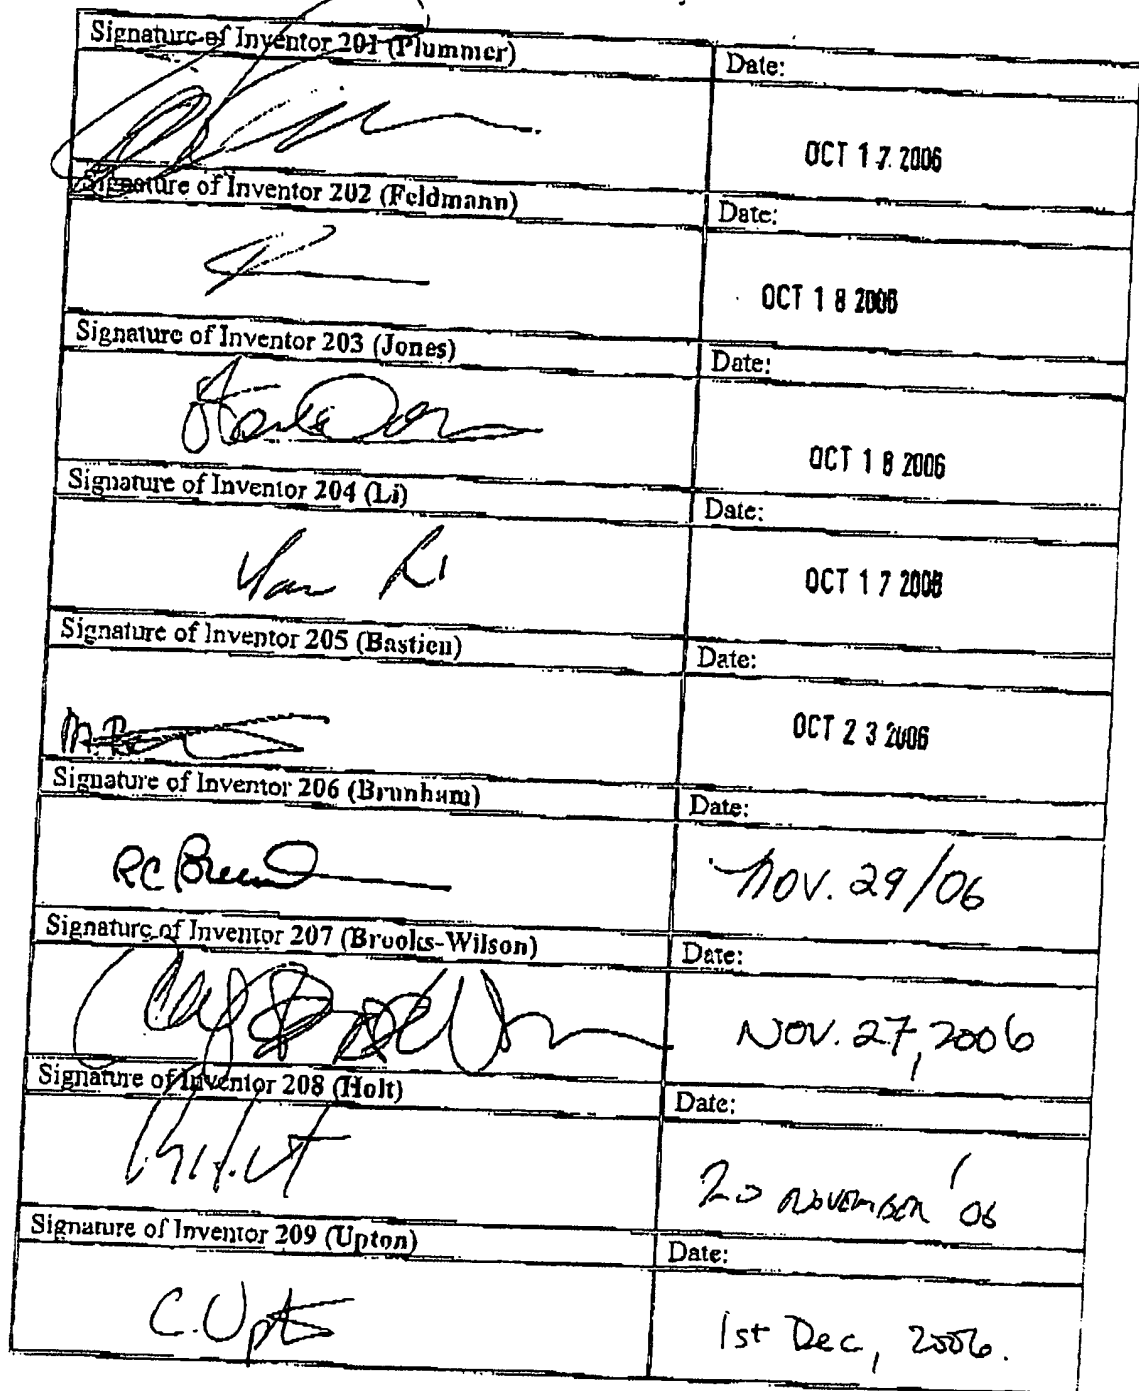 Signature of Inventor 201 (Plummer)
Date:
OCT 17. 2006
Signature of Inventor 202 (Feldmann)
Date:
OCT 18 2006
Signature of Inventor 203 (Jones)
Date:
OCT 18 2006
Signature of Inventor 204 (Li)
Date:
Yan Li
OCT 17 2006
Signature of Inventor 205 (Bastien)
Date:
OCT 23 2006
Signature of Inventor 206 (Brunham)
Date:
RC
Nov. 29/06
Signature of Inventor 207 (Brooks-Wilson)
Date:
NOV. 27, 2006
Signature of Inventor 208 (Holt)
Date:
20 NOVEMBER '06
Signature of Inventor 209 (Upton)
Date:
C. Upton
1st Dec, 2006.